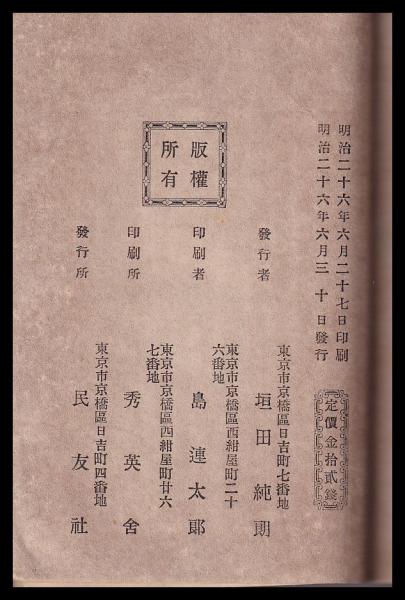 明治二十六年六月二十七日印刷
明治二十六年六月三十日發行
定價金拾貳錢
版權
所有
發行者
東京市京橋區日吉町七番地
垣田純朗
印刷者
東京市京橋區西紺屋町二十
六番地
島連太郎
印刷所
東京市京橋區西紺屋町廿六
七番地
秀英舍
發行所
東京市京橋區日吉町四番地
民友社